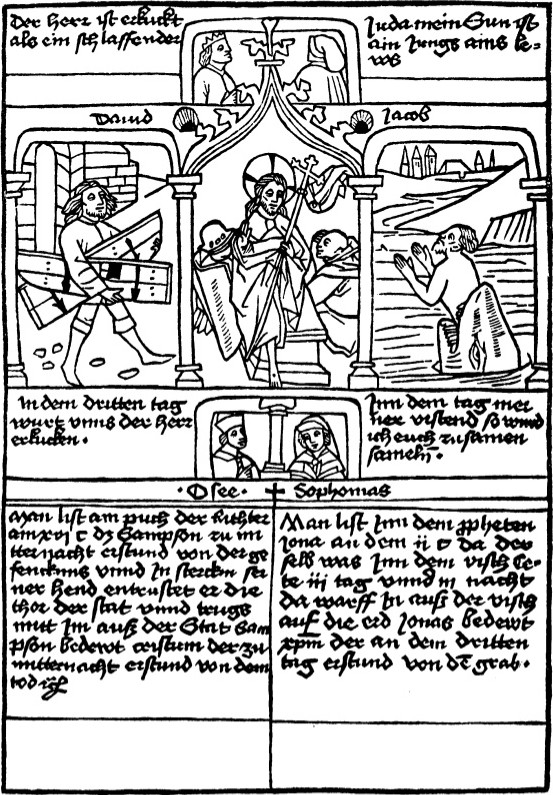 der herr ist erkuckt
als ein schlaffender
Juda mein Sun ist
ain Jungs ains le-
ws
Dauid
Jacob
In dem dritten tag
wurt vnns der herr
erkucken.
Inn dem tag mei
ner vrstend so wird
ich euch zusamen
sameln.
Osee. + Sophonias
Man list am puch der Richter
am xvi c dz Sampson zu mi
tternacht erstund von der ge
fencknus vnnd In stercken sei
ner hend entrüstet er die
thor der stat vnnd trugs
mitt Im auß der Stat Sam
pson bedewt cristum der zu
mitternacht erstund von dem
tod
Man list Inn dem ppheten
Jona an dem ii c da der
selb was Inn dem visch Ce-
te iii tag vnnd iii nacht
da warff In auß der visch
auf die erd Jonas bedewt
xpm der an dem dritten
tag erstund von dē grab.